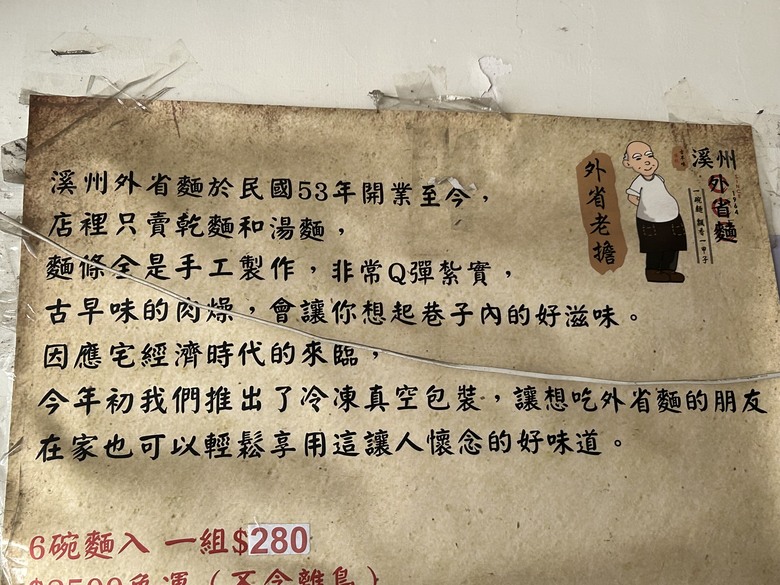 溪州外省麵於民國53年開業至今，
店裡只賣乾麵和湯麵，
麵條全是手工製作，非常Q彈紮實，
古早味的肉燥，會讓你想起巷子內的好滋味。
因應宅經濟時代的來臨，
今年初我們推出了冷凍真空包裝，讓想吃外省麵的朋友
在家也可以輕鬆享用這讓人懷念的好味道。
外省老擔
溪州
外省麵
1964
一碗麵 飄香一甲子
6碗麵入 一組$280
$2500免運（不含離島）